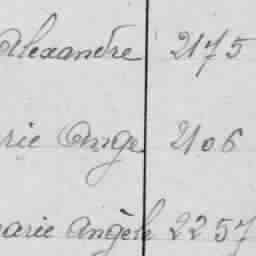 Alexandre 2175
rie Ange 2106
arie Angèle 2257